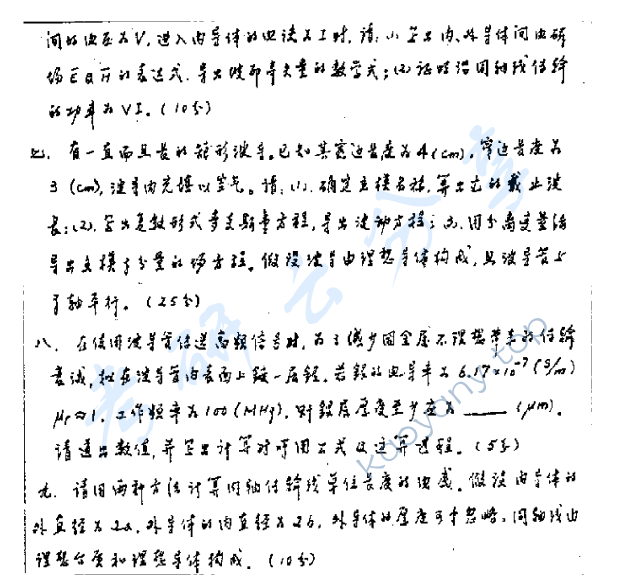 间的电压为V,进入内导体的电流为I时,请:(1)写出内、外导体间电磁
场E及H的表达式,导出坡印亭矢量的数学式;(2)证明沿同轴线传输
的功率为VI。(10分)
七、有一直而且长的矩形波导。已知其宽边长度为4(cm),窄边长度为
3(cm),波导内充填以空气。请:(1).确定主模名称,算出它的截止波
长;(2).写出复数形式麦克斯韦方程,导出波动方程;(3).用分离变量法
导出主模各分量的场方程。假设波导由理想导体构成,且波导管与
z轴平行。(25分)
八、在使用波导管传送高频信号时,为了减少因金属不理想带来的传输
衰减,拟在波导管内表面上镀一层银。若银的电导率为6.17×10⁻⁷(S/m)
μr≈1,工作频率为100(MHz),则银层厚度至少应为____(μm)。
请选出数值,并写出计算时所用公式及运算过程。(5分)
九、请用两种方法计算同轴传输线单位长度的电感。假设内导体的
外直径为2a,外导体的内直径为2b,外导体的厚度可予忽略,同轴线由
理想介质和理想导体构成。(10分)
考研云分享
kaoyany.top